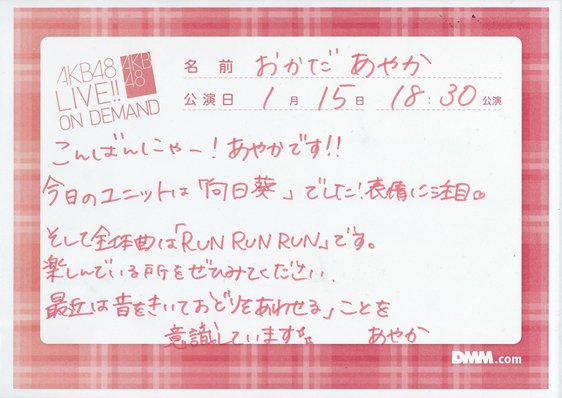 AKB48
LIVE!!
ON DEMAND
AKB
48
名前 おかだ あやか
公演日 1月 15日 18:30公演
こんばんにゃー!あやかです!!
今日のユニットは「向日葵」でした!表情に注目。
そして全体曲は「RUN RUN RUN」です。
楽しんでいる所をぜひみてください.
最近は音をきいておどりをあわせる」ことを
意識しています
あやか
DMM.com